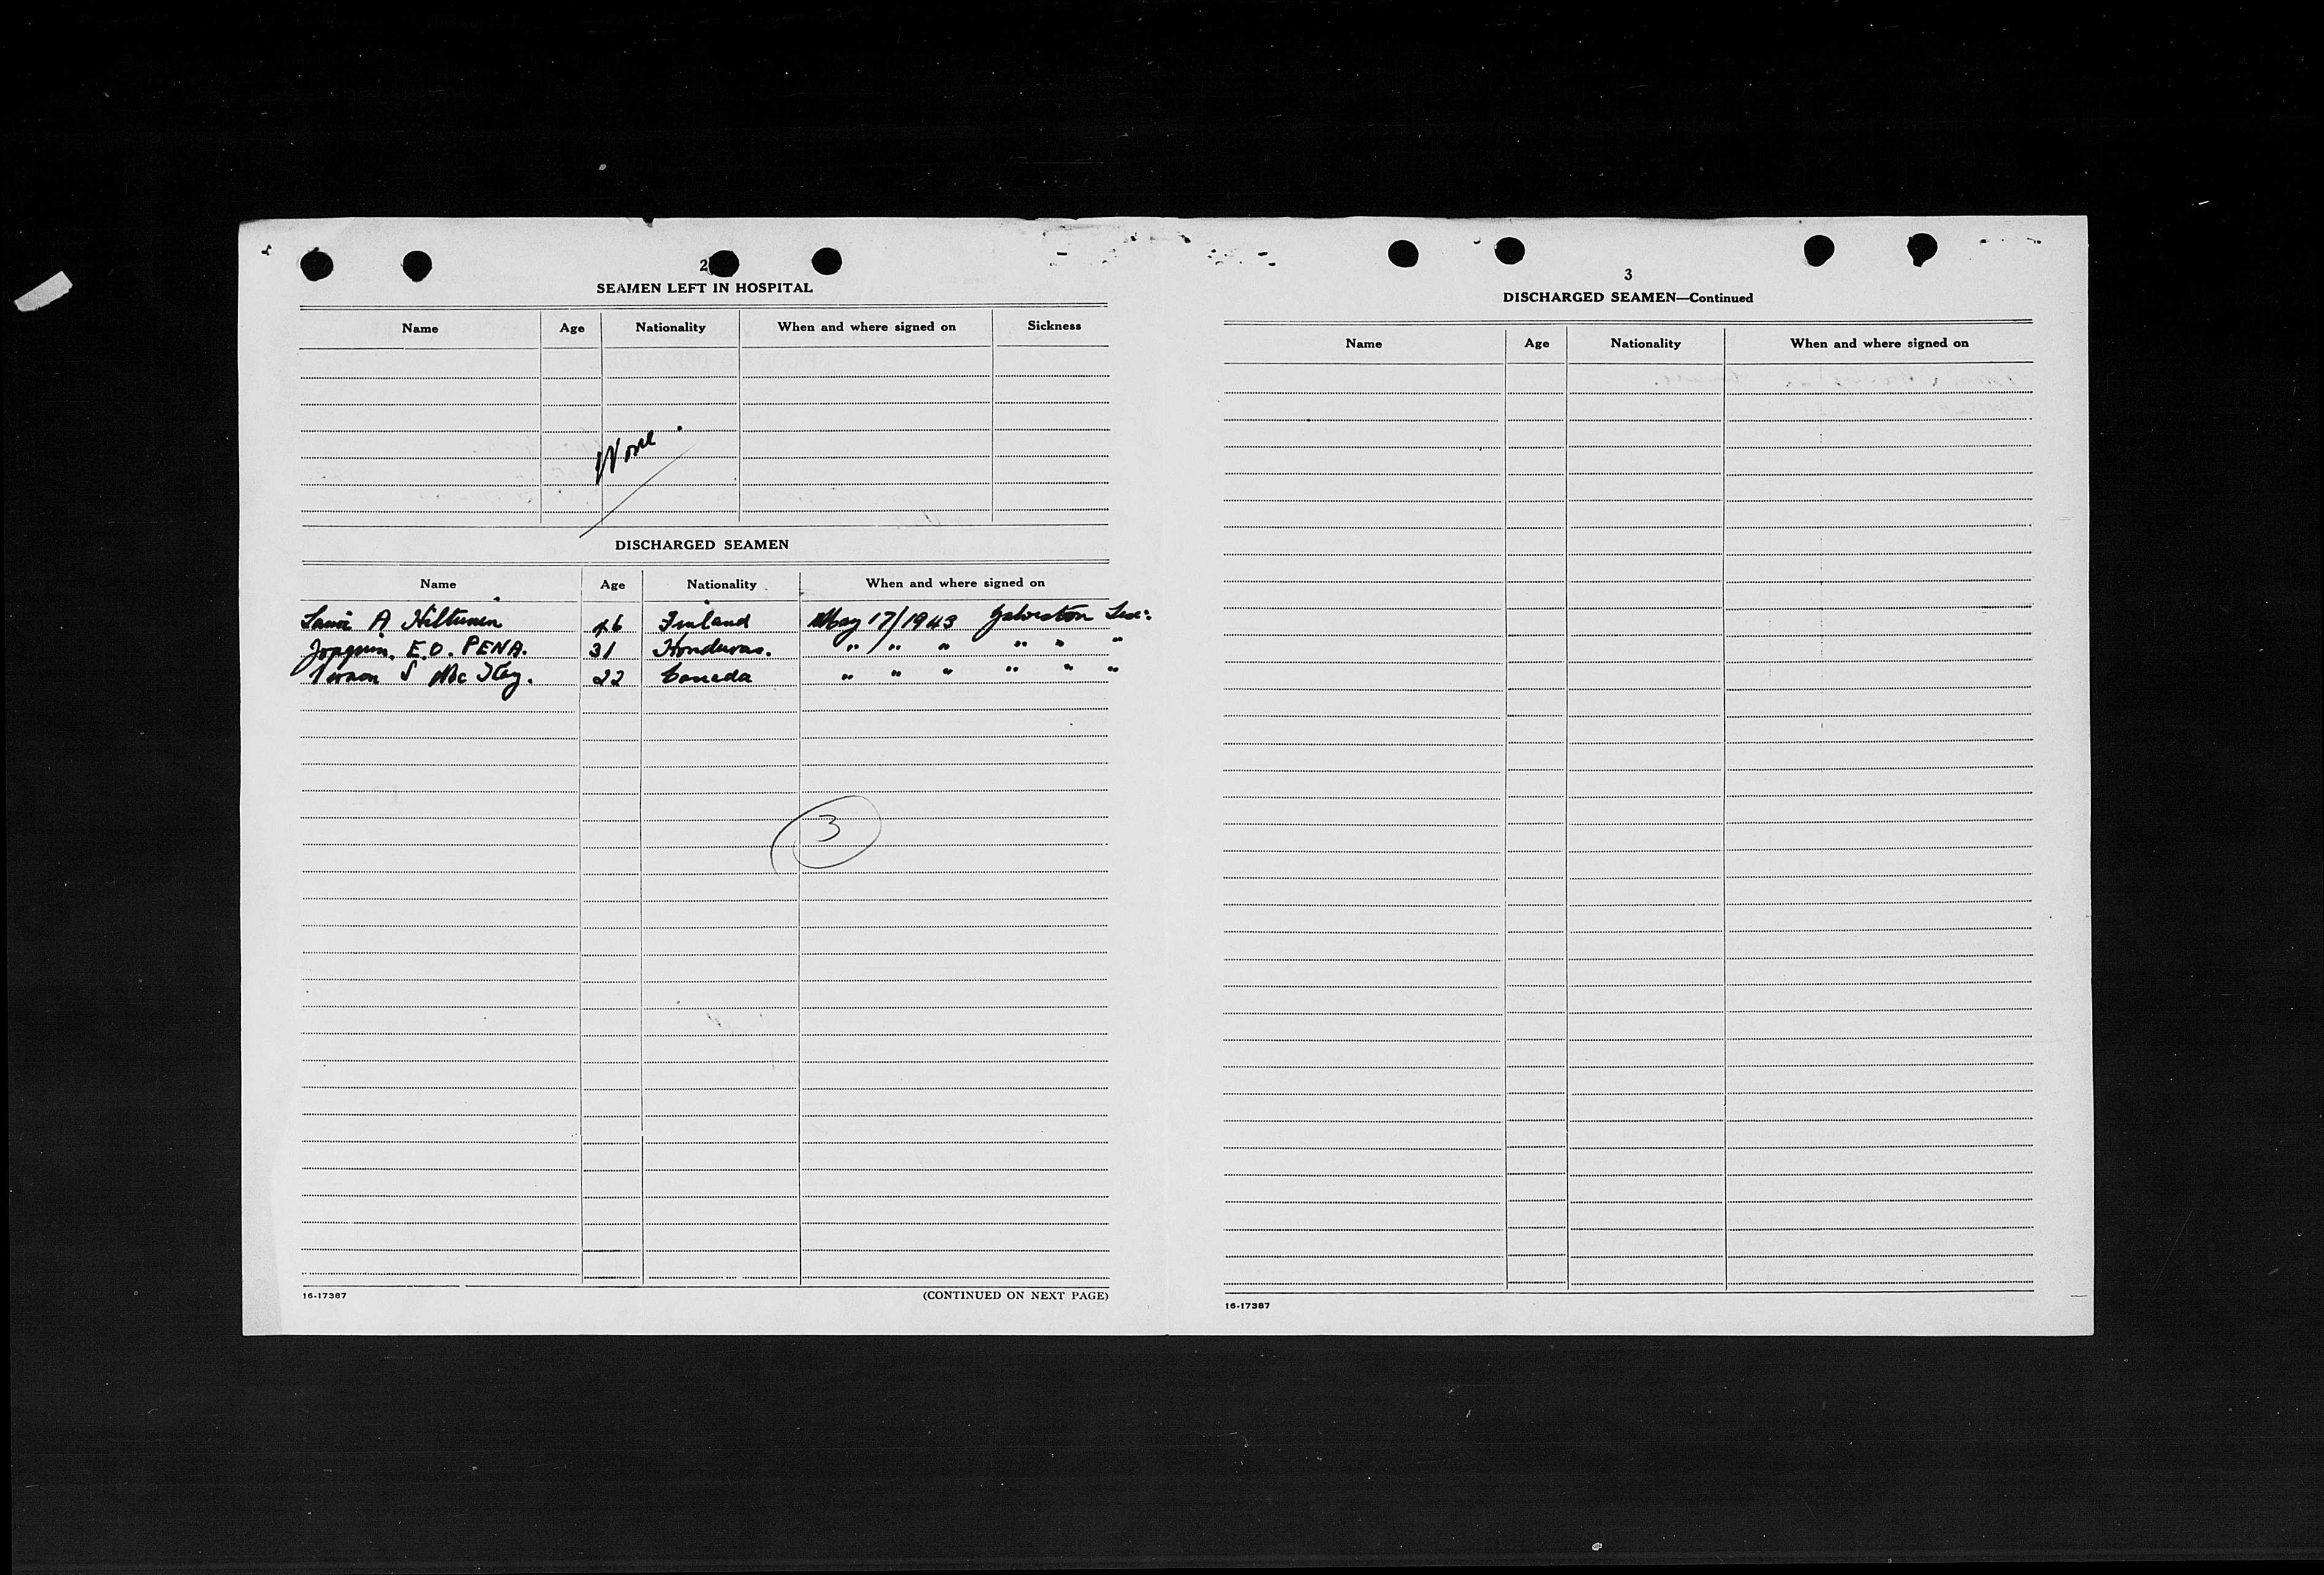 2
SEAMEN LEFT IN HOSPITAL
Name Age Nationality When and where signed on Sickness
None.
DISCHARGED SEAMEN
Name Age Nationality When and where signed on
A Hiltunen Finland May 17/1943 Galveston Tex:
Joaquin. E.O. PENA. 31 Honduras. " / " " " " "
Vernon S 22 Canada " " " " " "
3
16-17387
(CONTINUED ON NEXT PAGE)
3
DISCHARGED SEAMEN—Continued
Name Age Nationality When and where signed on
16-17387